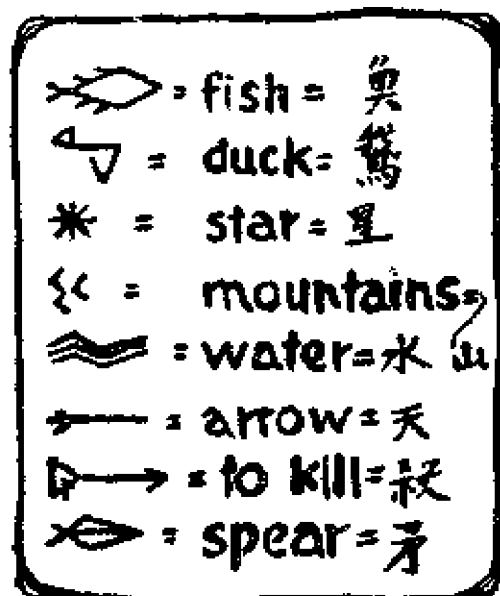 = fish = 魚
= duck = 鵞
= star = 星
= mountains =
= water = 水 山
= arrow = 天
= to kill =
= spear = 矛